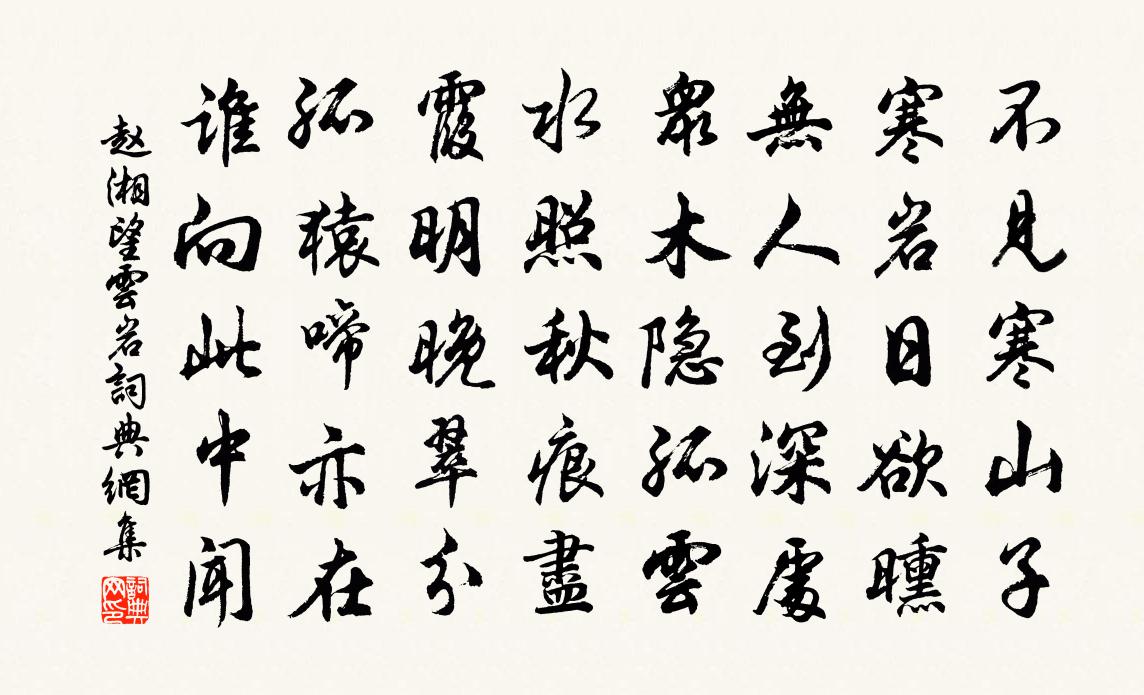 不見寒山子
寒岩日欲曛
無人到深處
衆木隐孤雲
水照秋痕盡
霞明晚翠分
孤猿啼亦在
誰向此中闻
赵湘望雲岩詞典網集
詞典网印